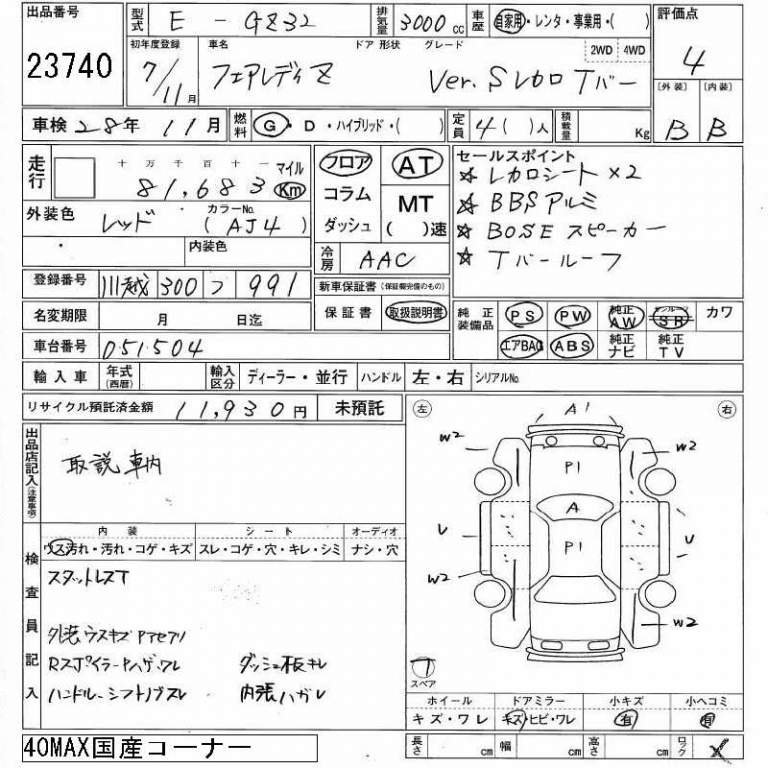 出品番号
23740
型式 E - GZ32
排気量 3000 cc
車歴 自家用・レンタ・事業用・( )
評価点
4
初年度登録
7/11月
車名
フェアレディZ
ドア 形状 グレード
2WD 4WD
Ver.S レカロ Tバー
[外装] [内装]
B B
車検 28年 11月
燃料 G・D・ハイブリッド・( )
定員 4( )人
積載量 Kg
走行
十 万 千 百 十 一 マイル
81,683 Km
フロア
コラム
ダッシュ
AT
MT
( )速
セールスポイント
☆ レカロシート×2
☆ BBSアルミ
☆ BOSEスピーカー
☆ Tバールーフ
外装色 レッド
カラーNo.
(AJ4)
内装色
冷房 AAC
登録番号 川越 300 つ 991
新車保証書 (保証記載完備のもの)
保証書 取扱説明書
名変期限 月 日迄
純正装備品 PS PW 純正AW SR カワ
エアBAG ABS 純正ナビ 純正TV
車台番号 051504
輸入車 年式(西暦)
輸入区分 ディーラー・並行
ハンドル 左・右
シリアルNo.
リサイクル預託済金額 11,930円 未預託
出品店記入(注意事項)
取説車内
左 右
A1
W2 W2
P1
A
U P1 U
W2 W2
検査員記入
内装 シート オーディオ
ウス汚れ・汚れ・コゲ・キズ スレ・コゲ・穴・キレ・シミ ナシ・穴
スタットレスT
外装ウスキズ
Rスポイラー ハゲ ワレ ダッシュ板キレ
ハンドル-シフトノブスレ 内張ハガレ
T
スペア
ホイール ドアミラー 小キズ 小ヘコミ
キズ・ワレ キズ・ヒビ・ワレ 有 有
40MAX国産コーナー
長さ cm 幅 cm 高さ cm ロック